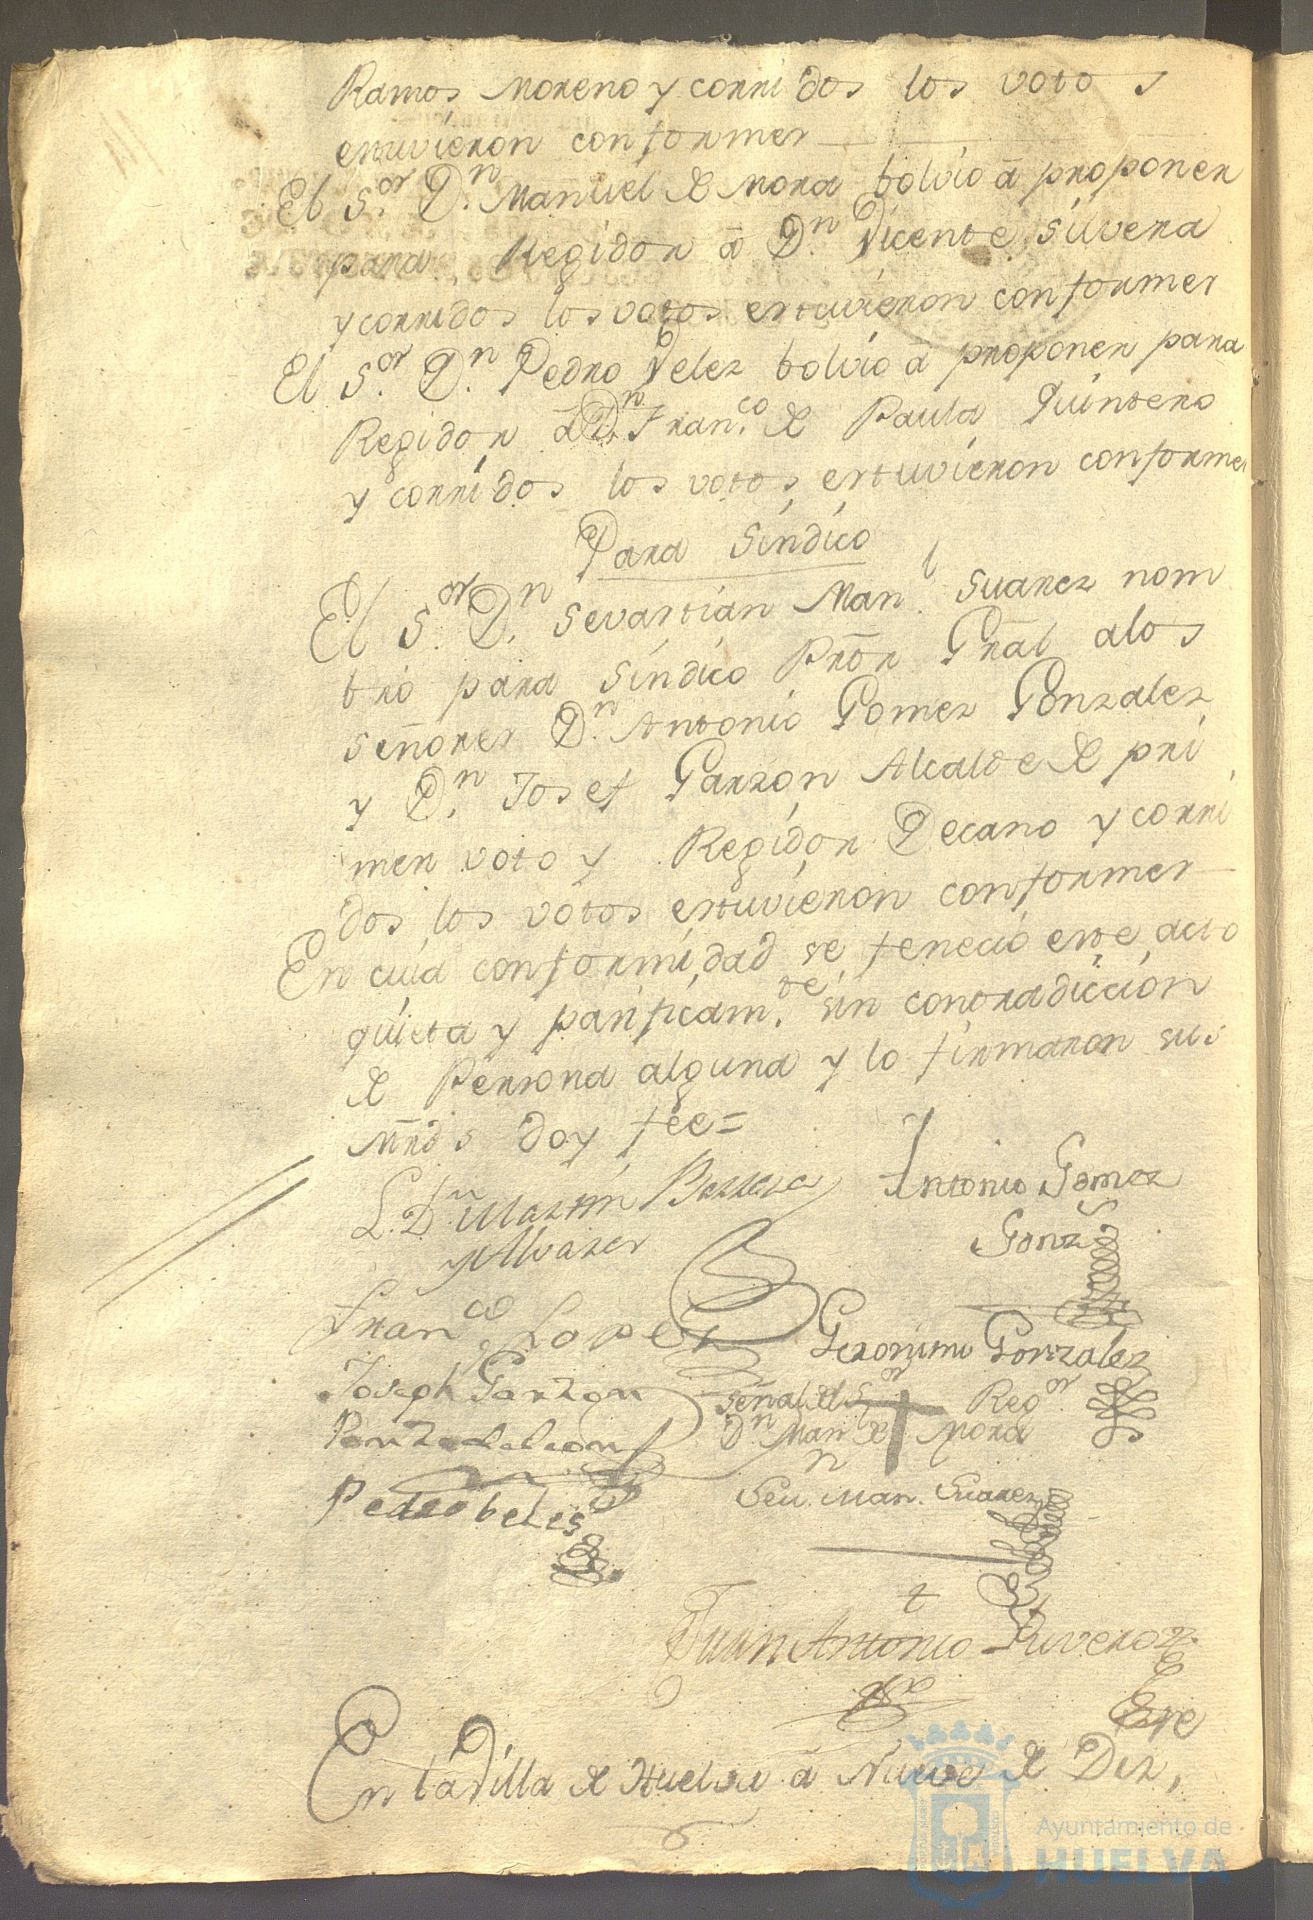 Ramos Moreno y corridos los votos
estuvieron conformes
El S.or D.n Manuel de Mora bolvio â proponer
para Regidor â D.n Vicente Silvera
y corridos los votos estuvieron conformes
El S.or D.n Pedro Velez bolvio â proponer para
Regidor â D.n Fran.co de Paula Quintero
y corridos los votos estuvieron conformes
Para Síndico
El S.or D.n Sevastian Man.l Suarez nom
bró para Síndico Prõr Grãl alos
señores D.n Antonio Gomez Gonzalez
y D.n Josef Garzon Alcalde de pri
mer voto y Regidor Decano y corri
dos los votos estuvieron conformes
En cuia conformidad se feneció este acto
quieta y pasificam.te sin contradiccion
de Persona alguna y lo firmaron sus
Mrds doy fee=
L. D.n Martin Barrera
y Alvarez
Antonio Gomez
Gonz
Fran.co Lopez
Geronimo Gonzalez
Joseph Garzon
Ponze de Leon
Señal del S.or Reg.or
D.n Man.l de Mora
Pedro beles
Sev.n Man. Suarez
Juan Antonio Rivero
En la Villa de Huelva â Nueve de Diz,
Ayuntamiento de
HUELVA